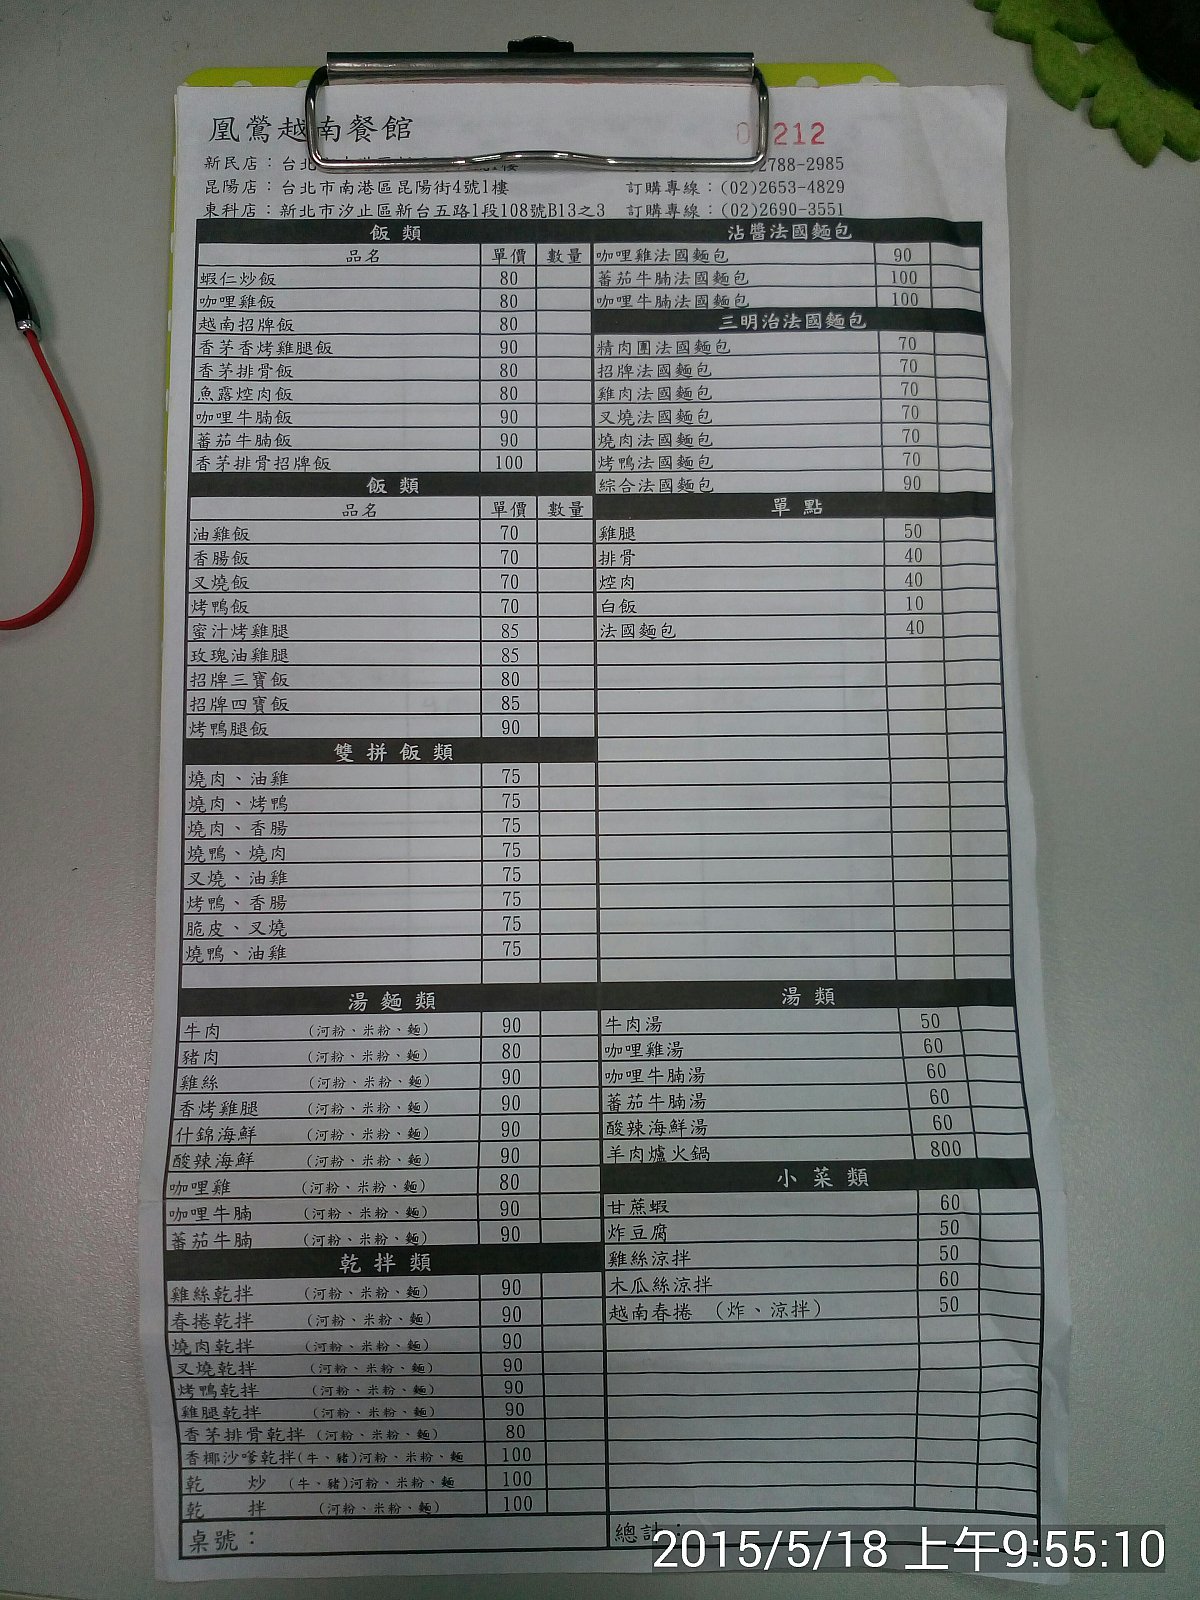 凰鶯越南餐館
212
新民店：台北 1樓 2788-2985
昆陽店：台北市南港區昆陽街4號1樓 訂購專線：(02)2653-4829
東科店：新北市汐止區新台五路1段108號B13之3 訂購專線：(02)2690-3551
飯 類
品名 單價 數量
蝦仁炒飯 80
咖哩雞飯 80
越南招牌飯 80
香茅香烤雞腿飯 90
香茅排骨飯 80
魚露焢肉飯 80
咖哩牛腩飯 90
蕃茄牛腩飯 90
香茅排骨招牌飯 100
飯 類
品名 單價 數量
油雞飯 70
香腸飯 70
叉燒飯 70
烤鴨飯 70
蜜汁烤雞腿 85
玫瑰油雞腿 85
招牌三寶飯 80
招牌四寶飯 85
烤鴨腿飯 90
雙 拼 飯 類
燒肉、油雞 75
燒肉、烤鴨 75
燒肉、香腸 75
燒鴨、燒肉 75
叉燒、油雞 75
烤鴨、香腸 75
脆皮、叉燒 75
燒鴨、油雞 75
湯 麵 類
牛肉 (河粉、米粉、麵) 90
豬肉 (河粉、米粉、麵) 80
雞絲 (河粉、米粉、麵) 90
香烤雞腿 (河粉、米粉、麵) 90
什錦海鮮 (河粉、米粉、麵) 90
酸辣海鮮 (河粉、米粉、麵) 90
咖哩雞 (河粉、米粉、麵) 80
咖哩牛腩 (河粉、米粉、麵) 90
蕃茄牛腩 (河粉、米粉、麵) 90
乾 拌 類
雞絲乾拌 (河粉、米粉、麵) 90
春捲乾拌 (河粉、米粉、麵) 90
燒肉乾拌 (河粉、米粉、麵) 90
叉燒乾拌 (河粉、米粉、麵) 90
烤鴨乾拌 (河粉、米粉、麵) 90
雞腿乾拌 (河粉、米粉、麵) 90
香茅排骨乾拌 (河粉、米粉、麵) 80
香椰沙嗲乾拌(牛、豬)河粉、米粉、麵 100
乾 炒 (牛、豬)河粉、米粉、麵 100
乾 拌 (河粉、米粉、麵) 100
桌號：
沾醬法國麵包
咖哩雞法國麵包 90
蕃茄牛腩法國麵包 100
咖哩牛腩法國麵包 100
三明治法國麵包
精肉團法國麵包 70
招牌法國麵包 70
雞肉法國麵包 70
叉燒法國麵包 70
燒肉法國麵包 70
烤鴨法國麵包 70
綜合法國麵包 90
單 點
雞腿 50
排骨 40
焢肉 40
白飯 10
法國麵包 40
湯 類
牛肉湯 50
咖哩雞湯 60
咖哩牛腩湯 60
蕃茄牛腩湯 60
酸辣海鮮湯 60
羊肉爐火鍋 800
小 菜 類
甘蔗蝦 60
炸豆腐 50
雞絲涼拌 50
木瓜絲涼拌 60
越南春捲 (炸、涼拌) 50
總計：
2015/5/18 上午9:55:10